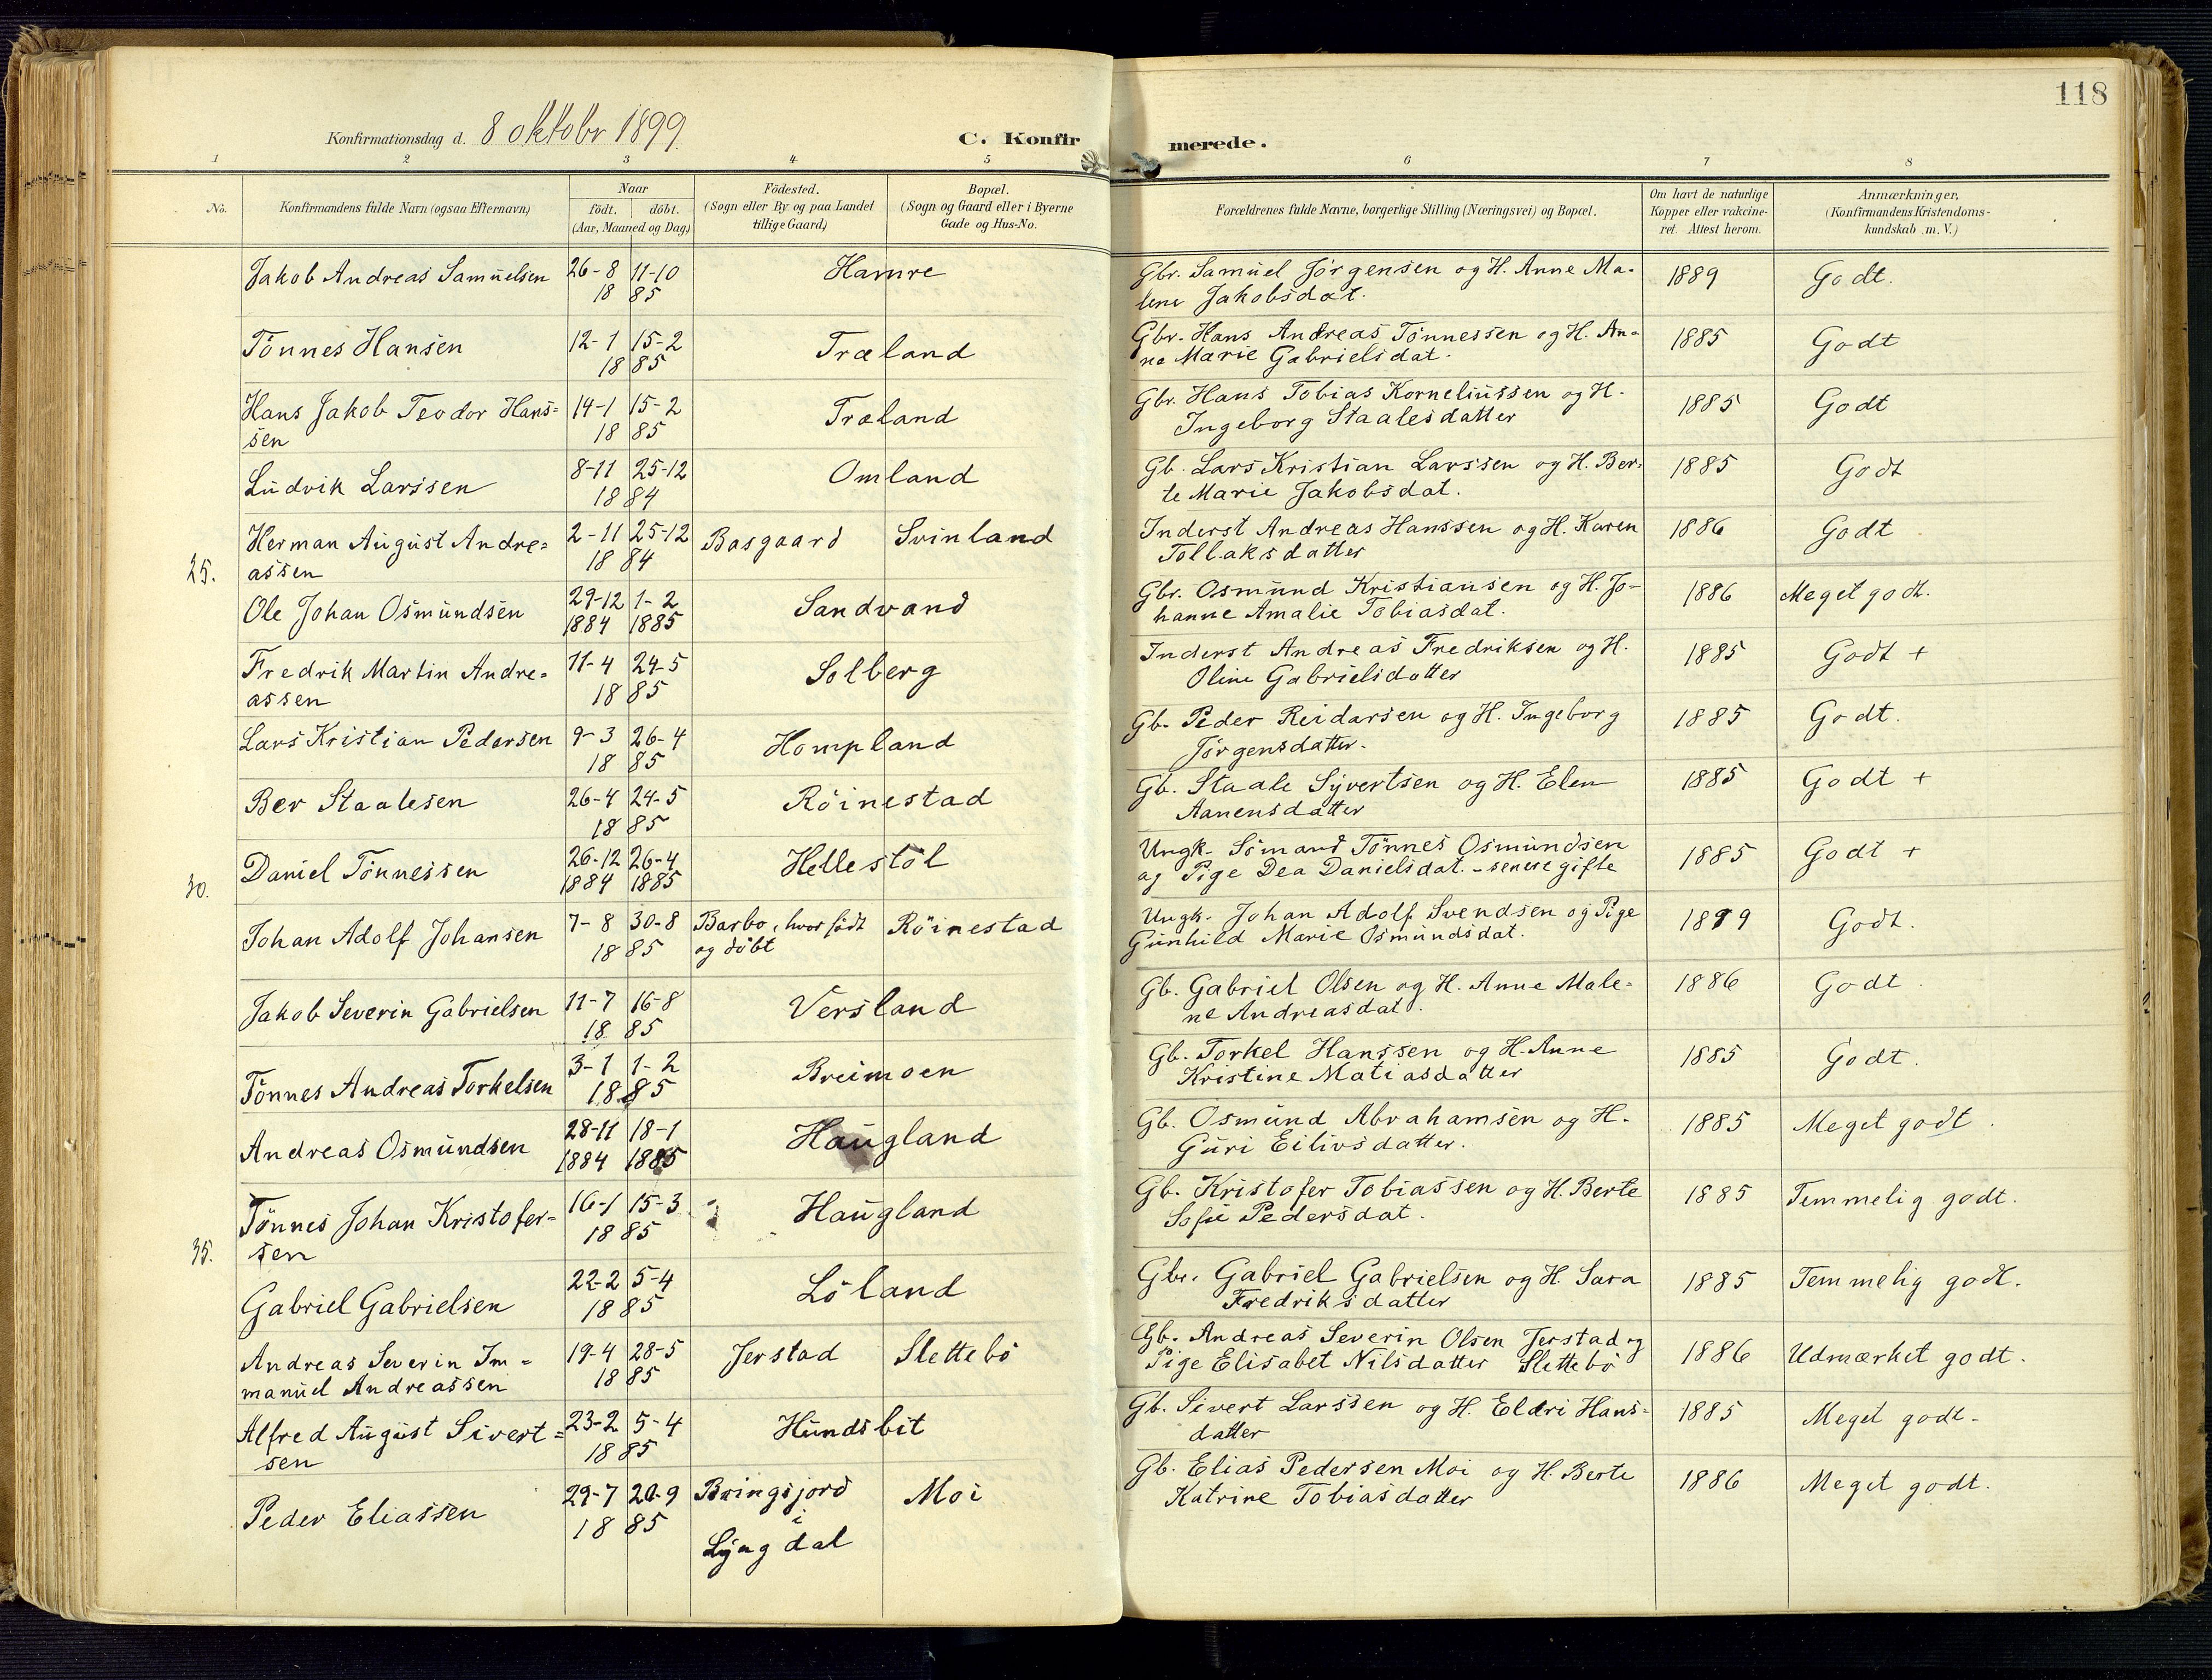 118
Konfirmationsdag d. 8 oktobr 1899.
C. Konfirmerede.
1 2 3 4 5 6 7 8
No.
Konfirmandens fulde Navn (ogsaa Efternavn)
Naar
födt. döbt.
(Aar, Maaned og Dag)
Födested.
(Sogn eller By og paa Landet
tillige Gaard)
Bopæl.
(Sogn og Gaard eller i Byerne
Gade og Hus-No.
Forældrenes fulde Navne, borgerlige Stilling (Næringsvei) og Bopæl.
Om havt de naturlige
Kopper eller vakcine-
ret. Attest herom.
Anmærkninger,
(Konfirmandens Kristendoms-
kundskab m. V.)
Jakob Andreas Samuelsen 26-8 11-10 Hamre Gbr. Samuel Jörgensen og H. Anne Ma- 1889 Godt.
18 85 lene Jakobsdat.
Tönnes Hansen 12-1 15-2 Træland Gbr. Hans Andreas Tönnessen og H. An- 1885 Godt
18 85 ne Marie Gabrielsdat.
Hans Jakob Teodor Hans= 14-1 15-2 Træland Gbr. Hans Tobias Korneliussen og H. 1885 Godt
sen 18 85 Ingeborg Staalesdatter
Ludvik Larssen 8-11 25-12 Omland Gb. Lars Kristian Larssen og H. Ber- 1885 Godt
18 84 te Marie Jakobsdat.
25. Herman August Andre= 2-11 25-12 Basgaard Svinland Inderst Andreas Hanssen og H. Karen 1886 Godt
assen 18 84 Tollaksdatter
Ole Johan Osmundsen 29-12 1-2 Sandvand Gbr. Osmund Kristiansen og H. Jo- 1886 Meget godt.
1884 1885 hanne Amalie Tobiasdat.
Fredrik Martin Andre= 11-4 24-5 Solberg Inderst Andreas Fredriksen og H. 1885 Godt +
assen 18 85 Oline Gabrielsdatter
Lars Kristian Pedersen 9-3 26-4 Hompland Gb. Peder Reidarsen og H. Ingeborg 1885 Godt.
18 85 Jörgensdatter.
Ber Staalesen 26-4 24-5 Röinestad Gb. Staale Syvertsen og H. Elen 1885 Godt +
18 85 Aanensdatter
30. Daniel Tönnessen 26-12 26-4 Hellestöl Ungk. Sömand Tönnes Osmundsen 1885 Godt +
1884 1885 og Pige Dea Danielsdat. - senere gifte
Johan Adolf Johansen 7-8 30-8 Barbo, hvor födt Röinestad Ungk. Johan Adolf Svendsen og Pige 1899 Godt.
18 85 og döbt Gunhild Marie Osmundsdat.
Jakob Severin Gabrielsen 11-7 16-8 Versland Gb. Gabriel Olsen og H. Anne Male= 1886 Godt
18 85 ne Andreasdat.
Tönnes Andreas Torkelsen 3-1 1-2 Breimoen Gb. Torkel Hanssen og H. Anne 1885 Godt.
18 85 Kristine Matiasdatter
Andreas Osmundsen 28-11 18-1 Haugland Gb. Osmund Abrahamsen og H. 1885 Meget godt.
1884 1885 Guri Eilivsdatter.
35. Tönnes Johan Kristofer= 16-1 15-3 Haugland Gb. Kristofer Tobiassen og H. Berte 1885 Temmelig godt.
sen 18 85 Sofie Pedersdat.
Gabriel Gabrielsen 22-2 5-4 Löland Gbr. Gabriel Gabrielsen og H. Sara 1885 Temmelig godt.
18 85 Fredriksdatter
Andreas Severin Im= 19-4 28-5 Jerstad Slettebö Gb. Andreas Severin Olsen Jerstad og 1886 Udmærket godt.
manuel Andreassen 18 85 Pige Elisabet Nilsdatter Slettebö
Alfred August Sivert= 23-2 5-4 Hundsbit Gb. Sivert Larssen og H. Eldri Hans- 1885 Meget godt-
sen 18 85 datter
Peder Eliassen 29-7 20-9 Bringsjord Moi Gb. Elias Pedersen Moi og H. Berte 1886 Meget godt.
18 85 i Katrine Tobiasdatter
Lyngdal